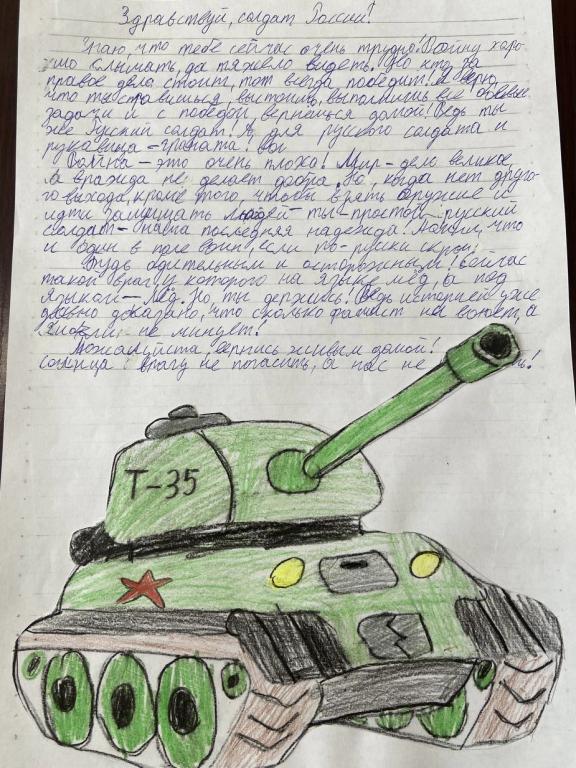 Здравствуй, солдат России!
Знаю, что тебе сейчас очень трудно! Войну хоро-
шо слышать, да тяжело видеть. Но кто за
правое дело стоит, тот всегда победит! Я верю,
что ты справишься, выстоишь, выполнишь все боевые
задачи и с победой вернешься домой! Ведь ты
же Русский солдат! А для русского солдата и
рукавица – граната!
Война – это очень плохо! Мир – дело великое,
а вражда не делает добра. Но, когда нет друго-
го выхода, кроме того, чтобы взять оружие и
идти защищать людей – ты – простой русский
солдат – наша последняя надежда! Помни, что
и один в поле воин, если по-русски скроен!
Будь бдительным и осторожным! Сейчас
такой враг, у которого на языке мёд, а под
языком – лёд. Но, ты держись! Ведь историей уже
давно доказано, что сколько фашист ни воюет, а
не минует!
Пожалуйста, вернись живым домой!
Солнца врагу не погасить, а нас не
Т-35